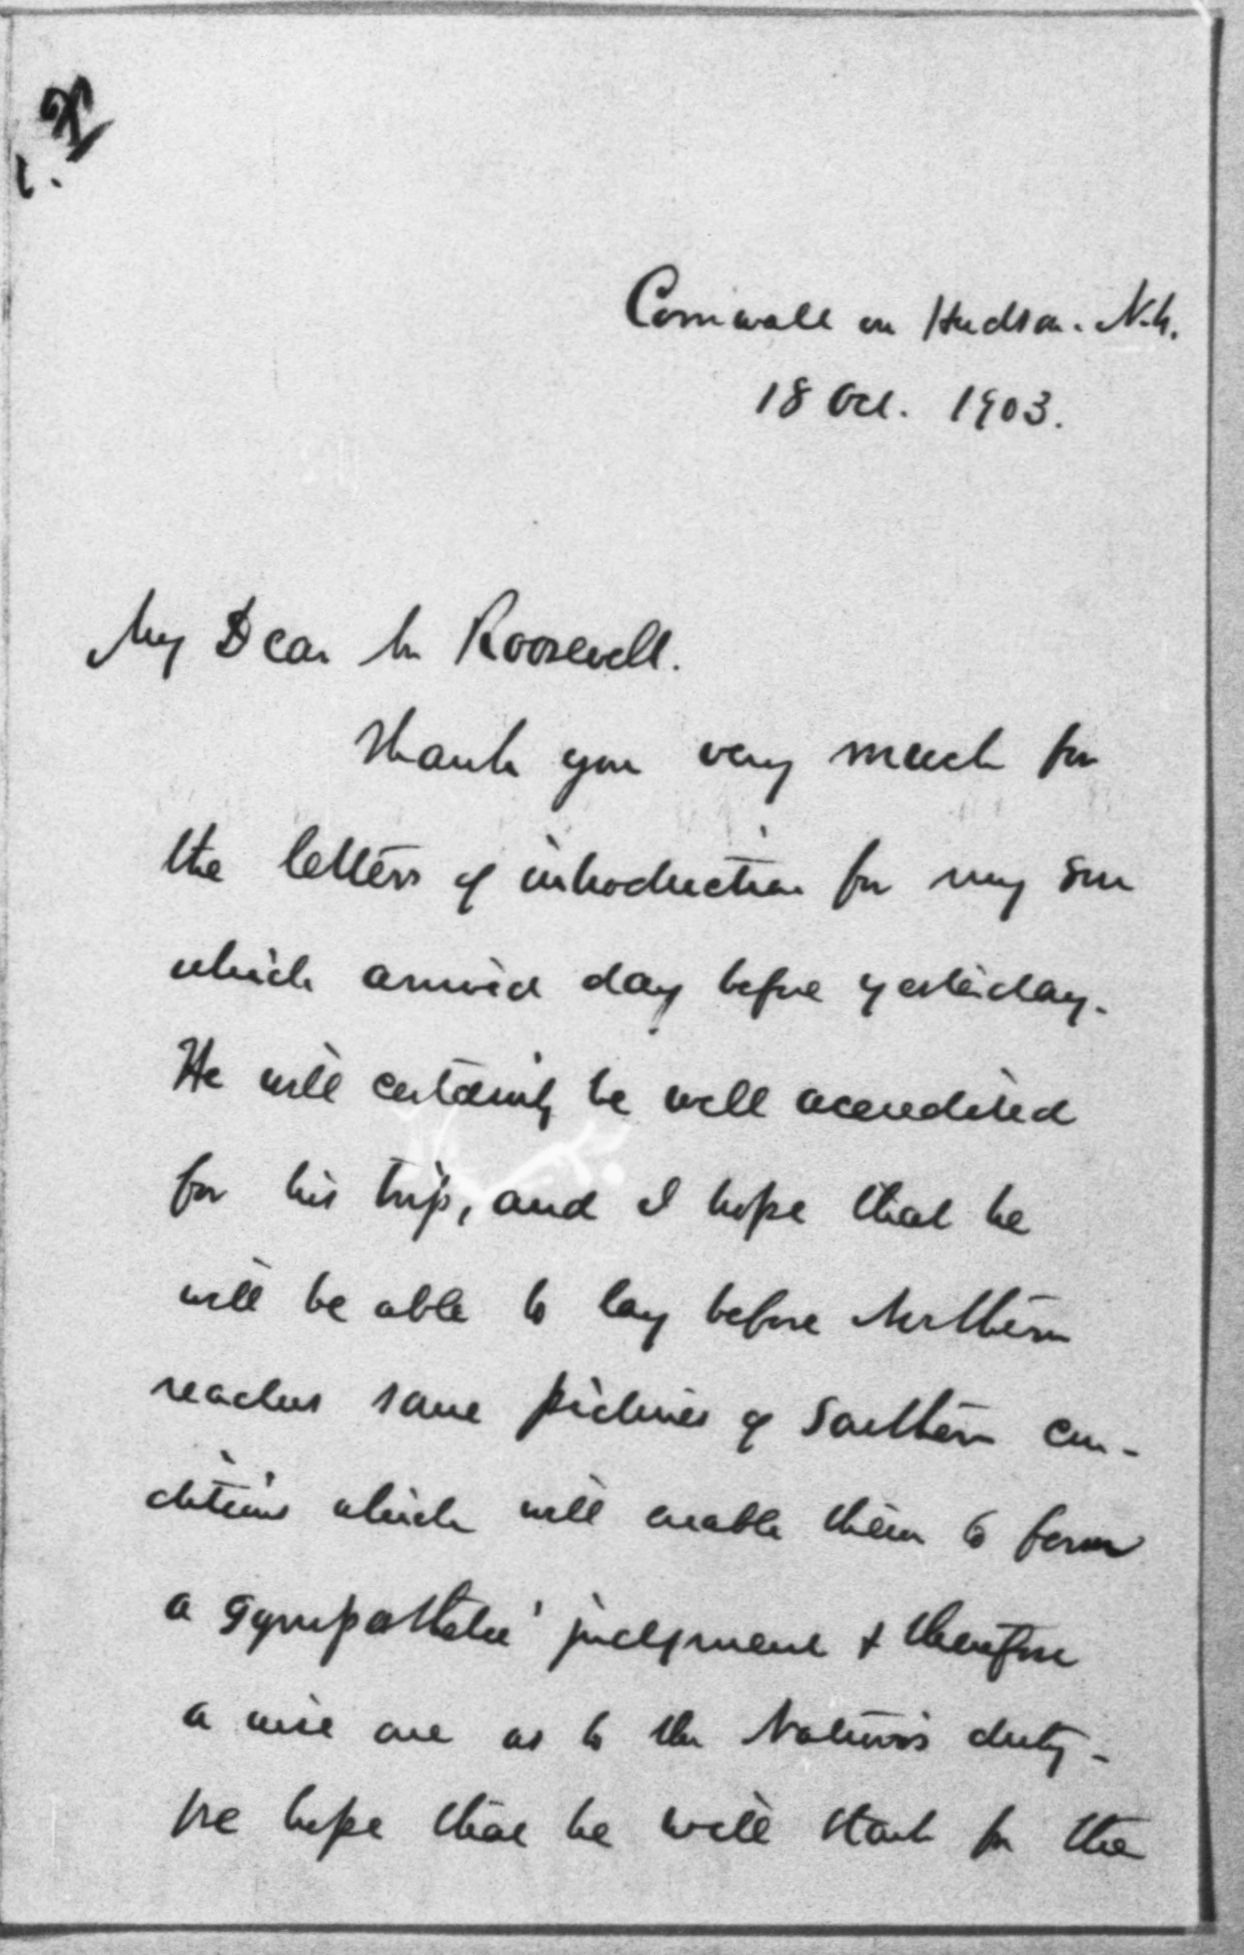 Cornwall on Hudson. N.Y.
18 Oct. 1903.
My Dear Mr Roosevelt.
Thank you very much for
the letters of introduction for my son
which arrived day before yesterday.
He will certainly be well accredited
for his trip, and I hope that he
will be able to lay before Northern
readers some pictures of Southern con-
ditions which will enable them to form
a sympathetic judgment & therefore
a wise one as to the Nation's duty -
We hope that he will start for the